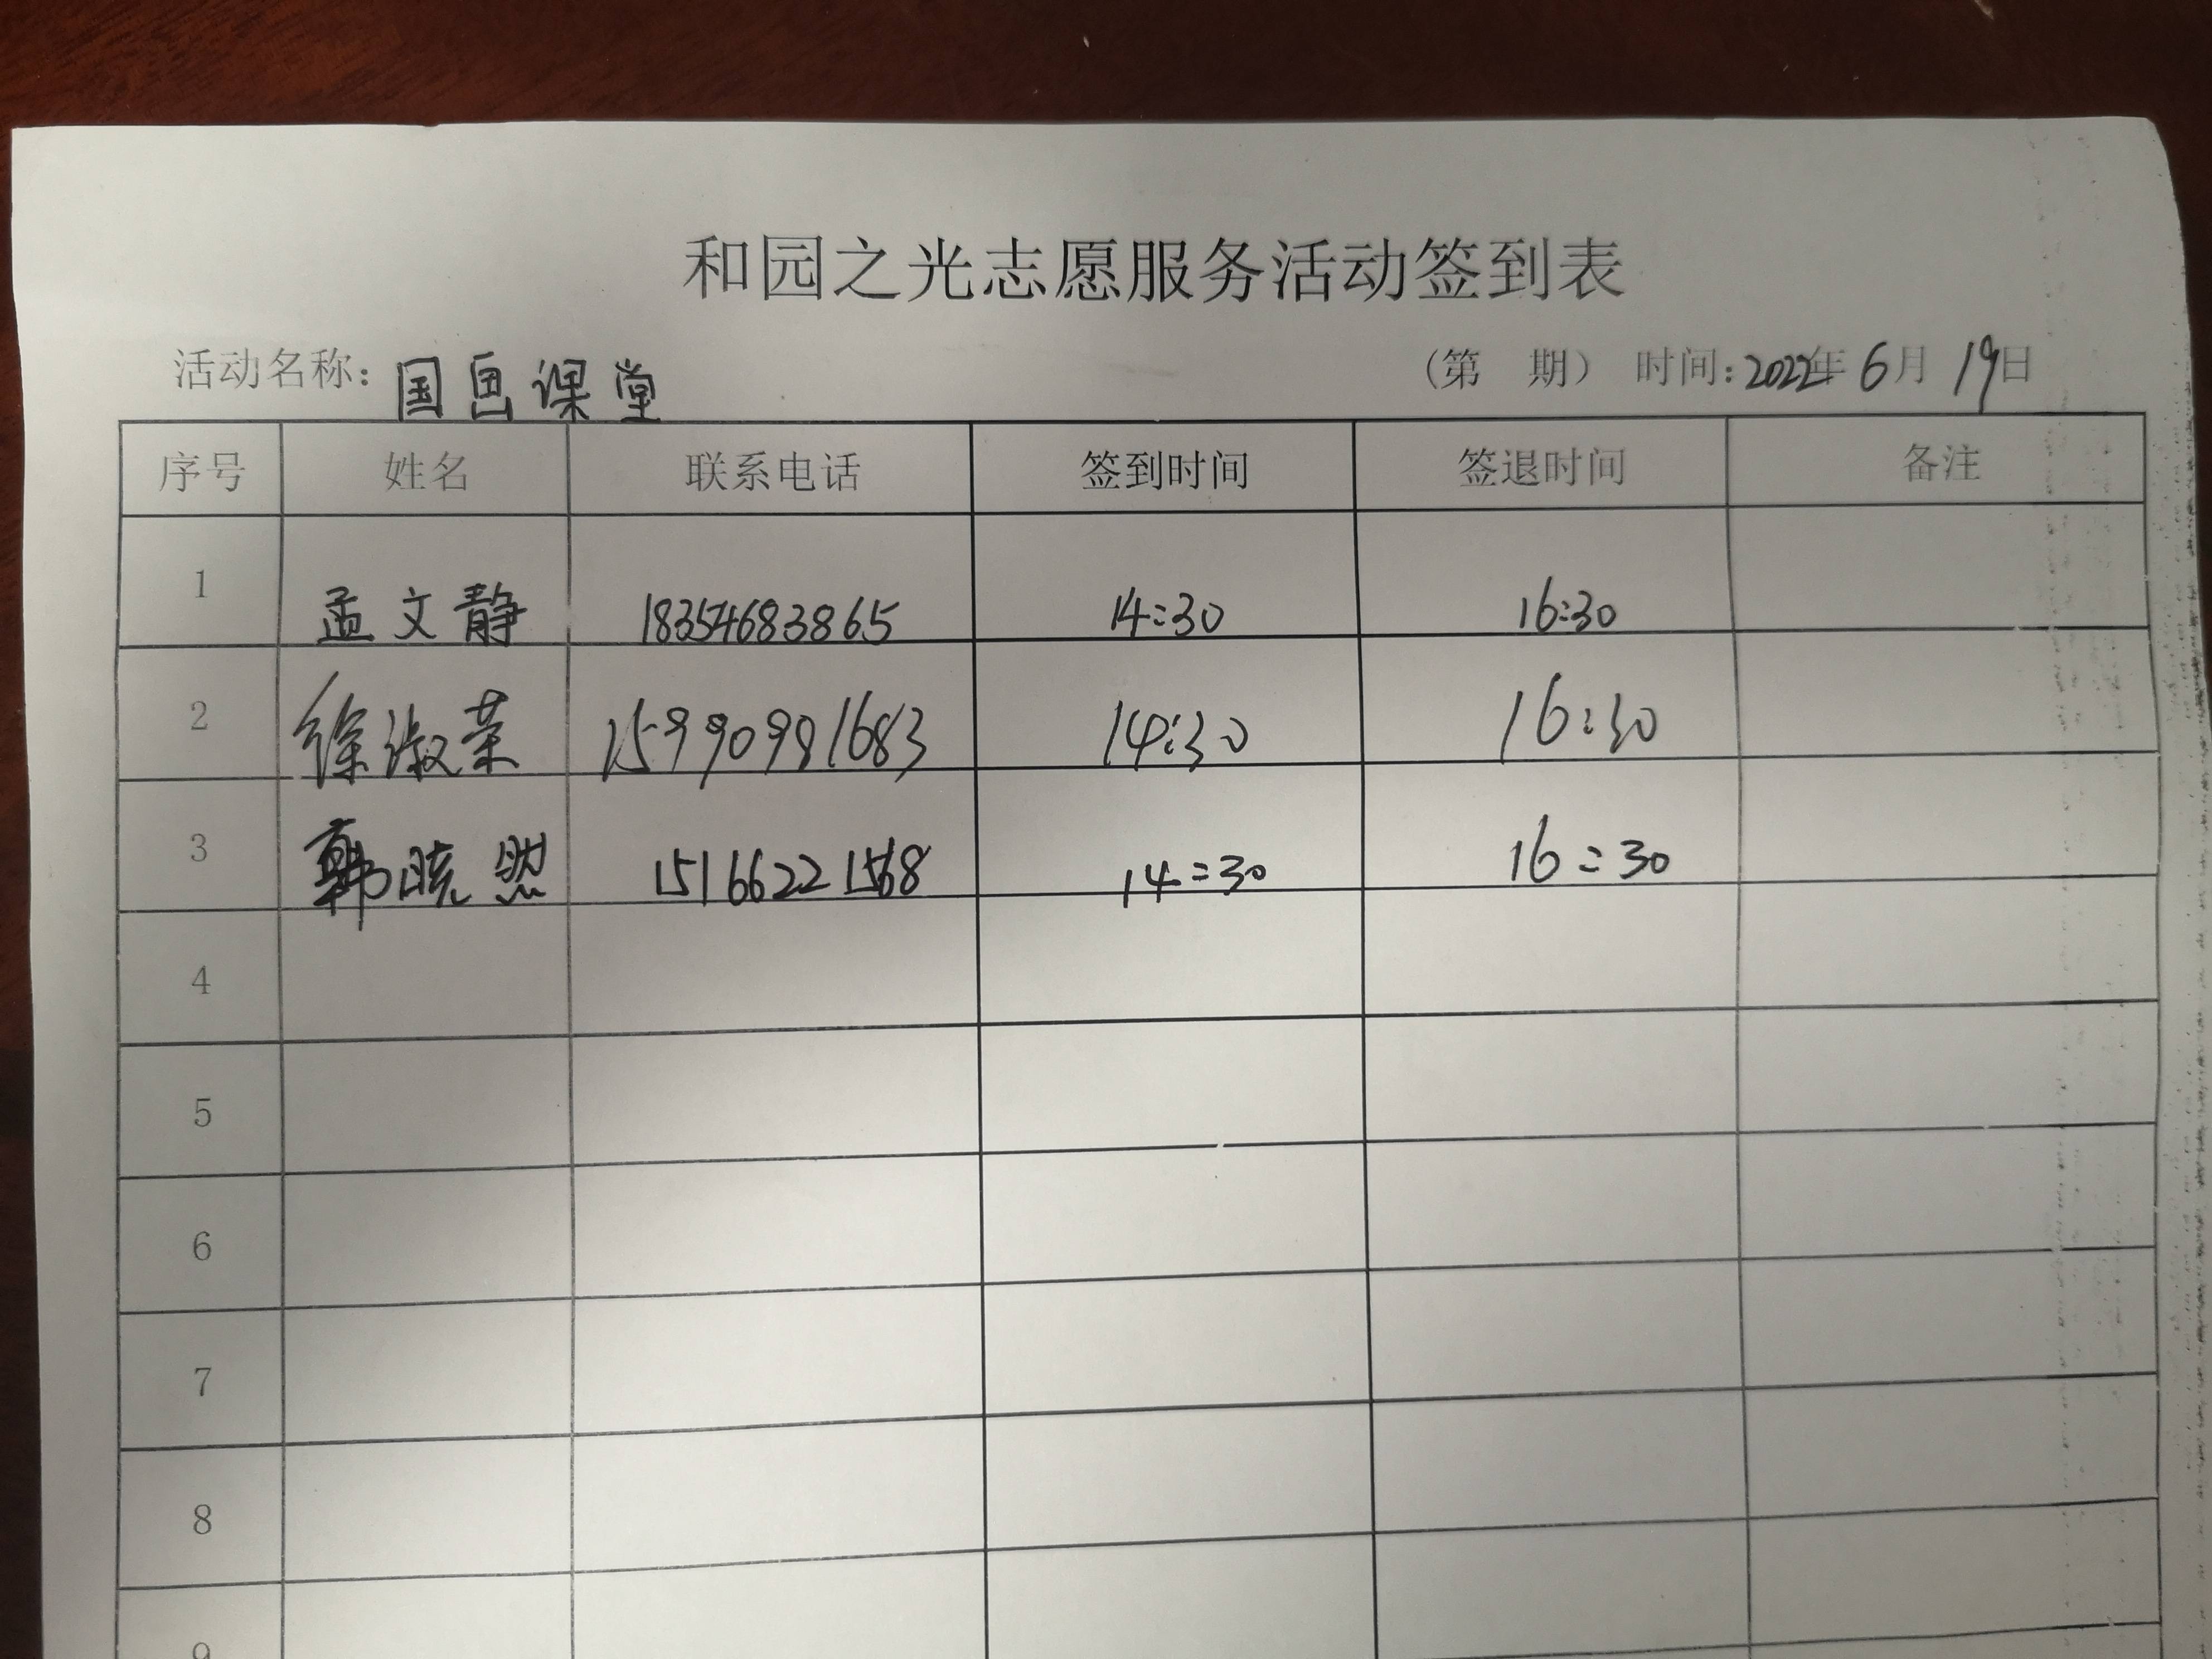 和园之光志愿服务活动签到表
活动名称：国画课堂 （第 期） 时间：2022年6月19日
序号 姓名 联系电话 签到时间 签退时间 备注
1 孟文静 18354683865 14:30 16:30
2 徐淑荣 15990991683 14:30 16:30
3 韩晓然 15166221568 14:30 16:30
4
5
6
7
8
9